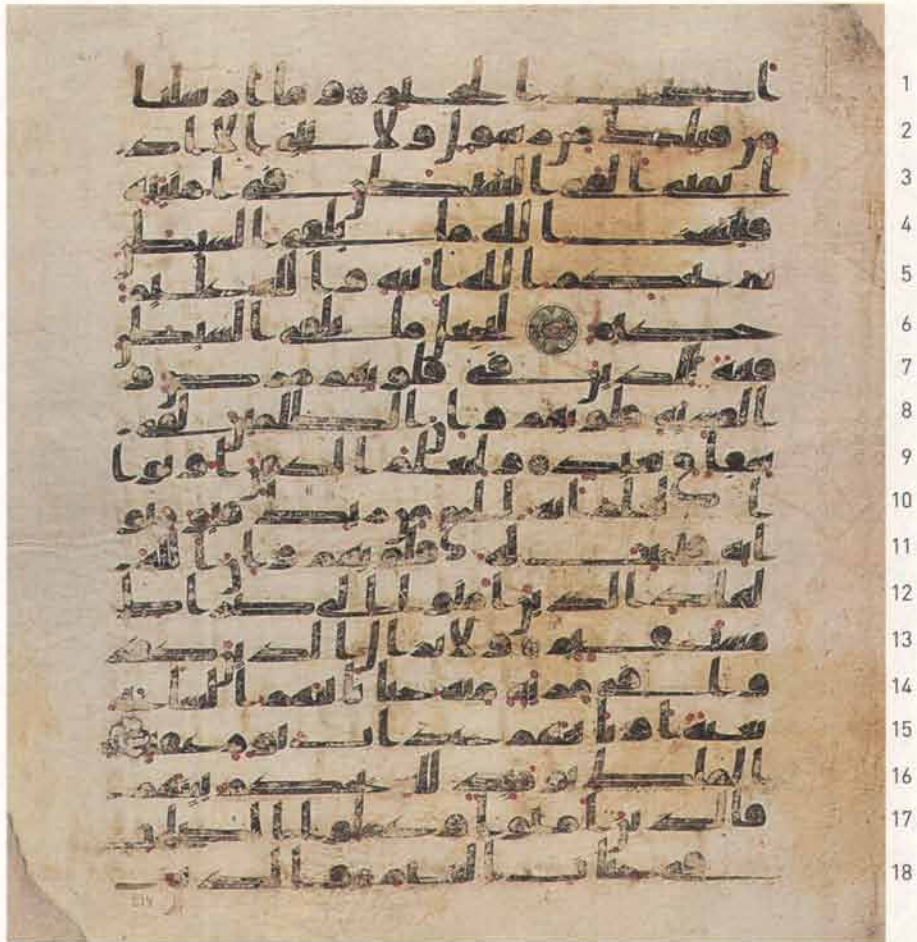 اصحب الجحيم وما ارسلنا 1
من قبلك من رسول ولا نبى الا اذ 2
ا تمنى القى الشيطن فى امنيته 3
فينسخ الله ما يلقى الشيطن 4
ثم يحكم الله ايته والله عليم 5
حكيم ليجعل ما يلقى الشيطن 6
فتنة للذين فى قلوبهم مرض و 7
القسية قلوبهم وان الظلمين لفى 8
شقاق بعيد وليعلم الذين اوتوا 9
العلم انه الحق من ربك فيومنو 10
ا به فتخبت له قلوبهم وان الله 11
لهاد الذين امنوا الى صرط 12
مستقيم ولا يزال الذين كفر 13
وا فى مرية منه حتى تاتيهم السا 14
عة بغتة او ياتيهم عذاب يوم عقيم 15
الملك يومئذ لله يحكم بينهم 16
فالذين امنوا وعملوا الصلحت 17
فى جنت النعيم والذين 18